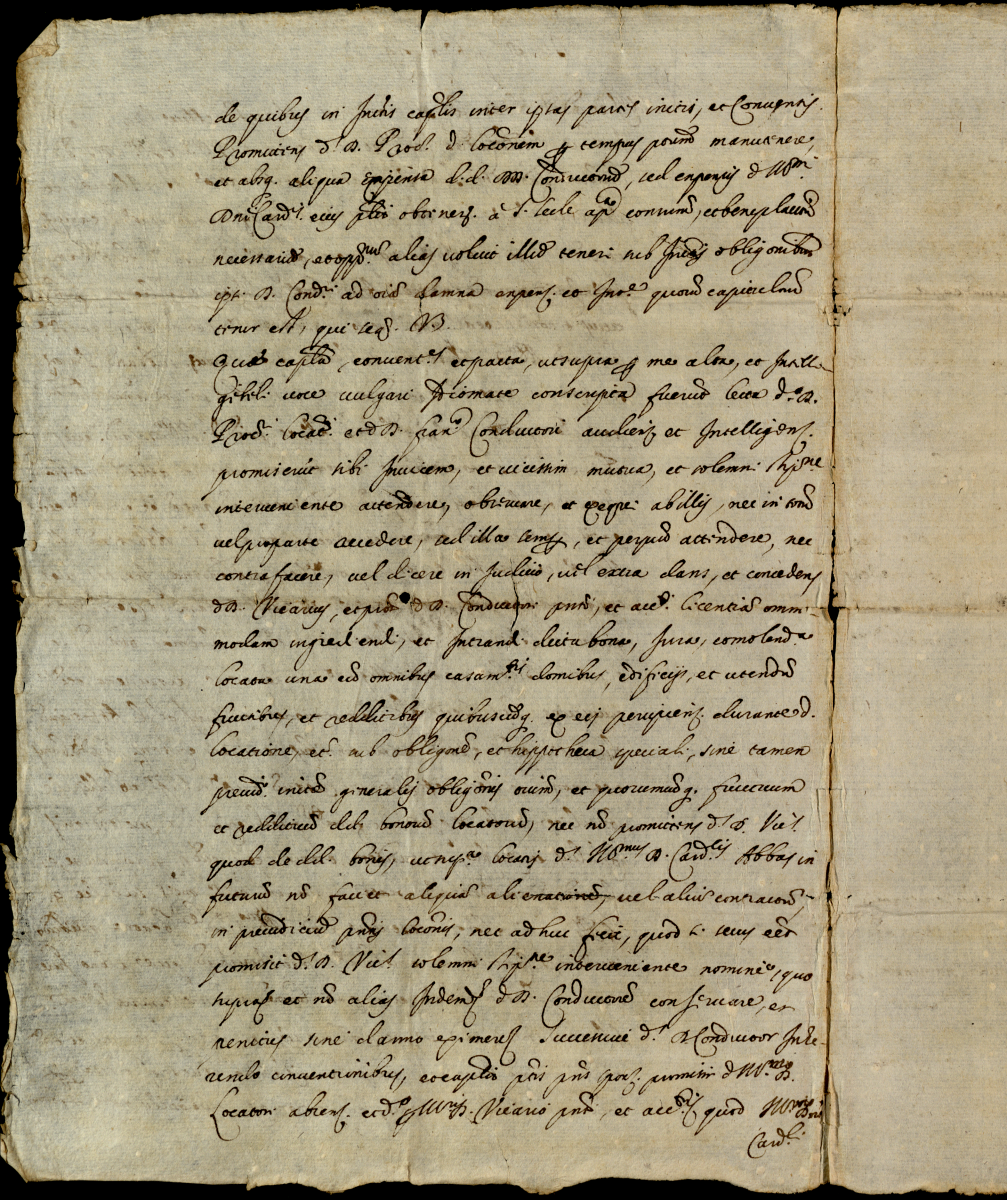 de quibus in Infris caplis inter ipsas partes initis, et Conventis.
Promittens d. D. Proc. d. locõnem tempus manutenere,
et absq. aliqua expensa d. d. DD. Conductorum, sed expensis d. Illmi
Dni Card. eius obtenere à S. Sede consensum, et beneplacitum
necessarium, et opp.num alias voluit illum teneri sub Infris obligõnibus
ipi D. Cond.ri ad oïa damna expens. et Int.e quorum capitulorum
tenor est, qui seq. V3
Quæ capla, convent. et pacta, ut supra me alta, et Intelli-
gibili voce vulgari Idiomate conscripta fuerunt lecta d.o D.
Proc. locat. et d. D. Fran. Conductori audien. et Intelligen.
promiserunt sibi Invicem, et vicissim mutua, et solemni stip.ne
interveniente attendere, observare, et ab illis, nec in totum
vel pro parte recedere, sed illa semp, et perpetuo attendere, nec
contrafacere, vel dicere in Judicio, vel extra dans, et concedens
d. D. Vicarius, et d. D. Conductori pnti, et acc. licentiam omni
modam ingrediendi, et Intrandi dicta bona, Jura, comolenda
locata una cum omnibus casam.tis domibus, edificijs, et utendum
fructibus, et redditibus quibuscumq. ex eis percipien. durante d.
locatione, et. sub obligone, et hippotheca speciali, sine tamen
preiud. generalis obligõnis oium, et quorumcumq. fructuum
et reddituum dd. bonorum locatorum, nec nõ promittens d. D. Vic.
quod de dd. bonis, ut locatis d. Ill.mus D. Card.lis Abbas in
futurum nõ faciet aliquam alienationem, vel alium contractum
in preiudicium pntis locõnis, nec ad huc fecit, quod si secus eet
promisit d. D. Vic. solemni stip.ne interveniente nomine, quo
supra et nõ alias Indemn. d. D. Conductorem conservare, et
penitus sine damno eximere Successive d. D. Conductor Inhe-
rendo conventionibus, et captis ptis pns promisit d. Ill.mo D.
Locatori absen. et d.o D. Vicario pnti, et acc. quod Ill.mo Dno
Card.li